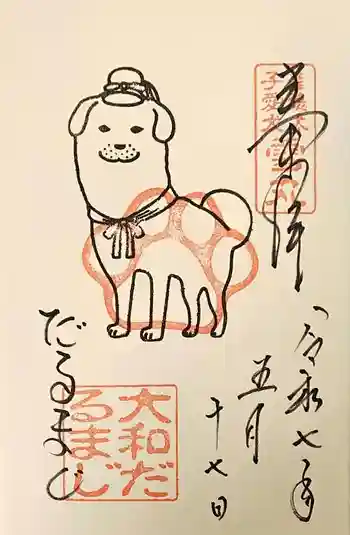 奉拝
令和七年
五月
十七日
だるまじ
大和だ
るまじ